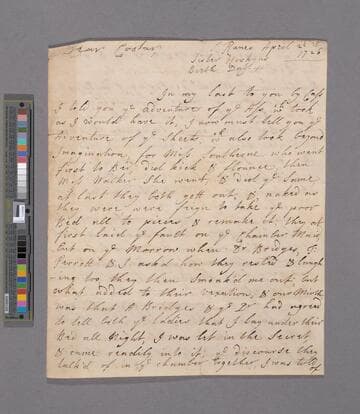 Dear Coster
Ranes April 2d
1726
Sister Hoskyns
Birth Day
In my last to you by Cass
I told you ye adventure of ye Ass, wch took
as I would have it, I now must tell you ye
Adventure of ye Sheets, wch also took beyond
Imagination, for Miss Southerne who went
first to Bed, did kick & flounce, then
Miss Walker. She went & did ye same
at last they both gott out, & naked as
they were were feign to take ye poor
Bed all to pieces & remake it, they at
first laid ye fault on ye Chamber Maid
but on ye Morrow when Dr Bridges, J
Perrott & I ask'd how they rested & laugh
-ing too they then smoak'd me out but
what added to their vexation, & our Mirth
was that H Bridges & ye Dr had agreed
to tell both ye Ladies that I lay under their
Bed all Night, I was let in the Secret
& came readily into it; ye discourse they
talk'd of in ye chamber together, I was told
of